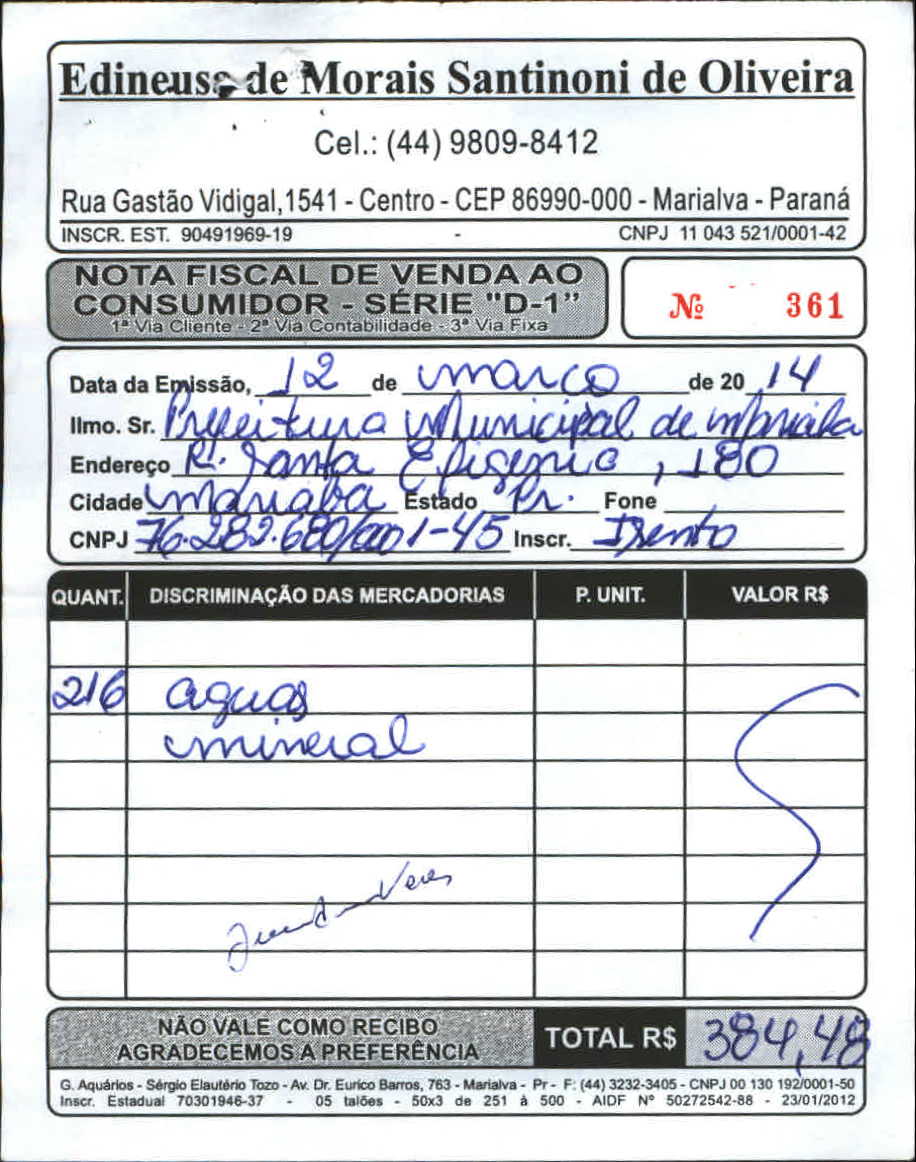 Edineusa de Morais Santinoni de Oliveira
Cel.: (44) 9809-8412
Rua Gastão Vidigal,1541 - Centro - CEP 86990-000 - Marialva - Paraná
INSCR. EST. 90491969-19 - CNPJ 11 043 521/0001-42
NOTA FISCAL DE VENDA AO
CONSUMIDOR - SÉRIE "D-1"
1ª Via Cliente - 2ª Via Contabilidade - 3ª Via Fixa
Nº 361
Data da Emissão, 12 de março de 20 14
Ilmo. Sr. Prefeitura Municipal de Marialva
Endereço R. Santa Efigenia, 180
Cidade Marialva Estado Pr. Fone
CNPJ 76.282.680/0001-45 Inscr. Isento
QUANT. DISCRIMINAÇÃO DAS MERCADORIAS P. UNIT. VALOR R$
216 aguas
mineral
NÃO VALE COMO RECIBO
AGRADECEMOS A PREFERÊNCIA
TOTAL R$ 384,48
G. Aquários - Sérgio Elautério Tozo - Av. Dr. Eurico Barros, 763 - Marialva - Pr - F: (44) 3232-3405 - CNPJ 00 130 192/0001-50
Inscr. Estadual 70301946-37 - 05 talões - 50x3 de 251 à 500 - AIDF Nº 50272542-88 - 23/01/2012